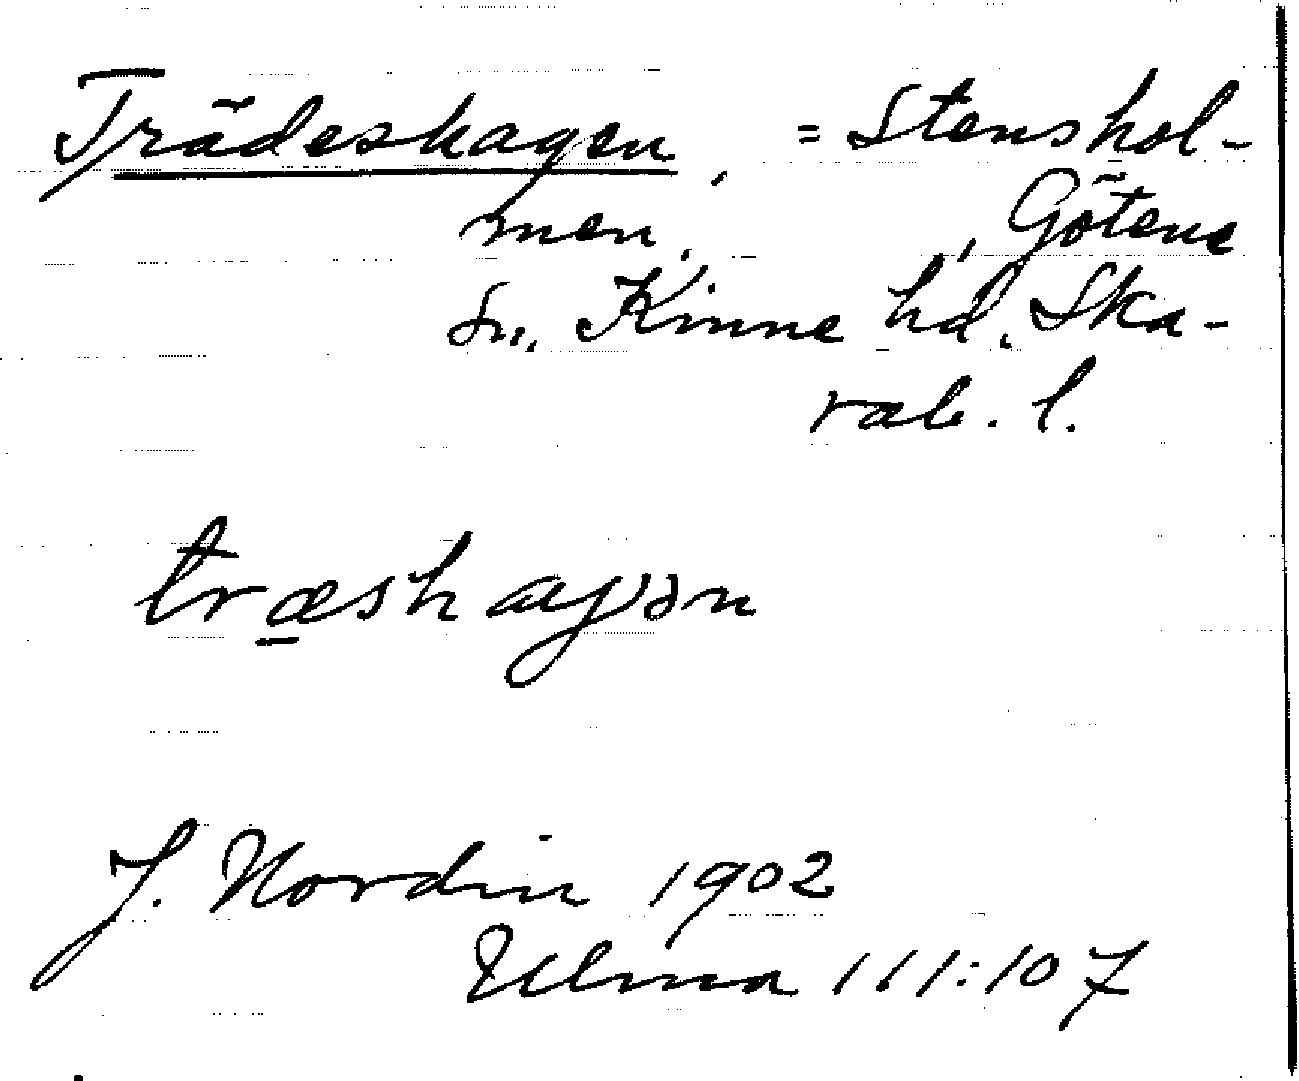 Trädeshagen, = Stenshol-
men, , Götene
sn, Kinne hd. Ska-
rab. l.
træshagən
J. Nordin 1902
Ulma 111:107